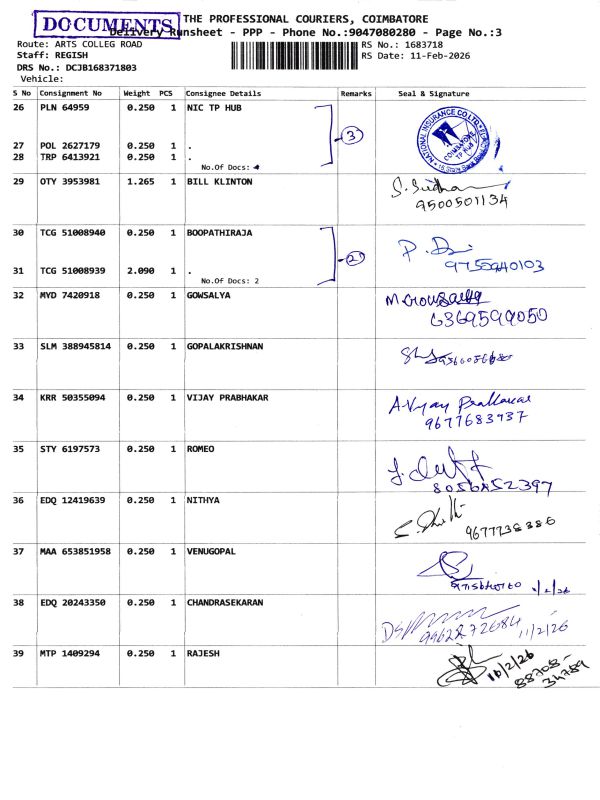 DOCUMENTS
THE PROFESSIONAL COURIERS, COIMBATORE
Delivery Runsheet - PPP - Phone No.:9047080280 - Page No.:3
Route: ARTS COLLEG ROAD
Staff: REGISH
DRS No.: DCJB168371803
Vehicle:
RS No.: 1683718
RS Date: 11-Feb-2026
S No Consignment No Weight PCS Consignee Details Remarks Seal & Signature
26 PLN 64959 0.250 1 NIC TP HUB
3
NATIONAL INSURANCE CO LTD
COIMBATORE
TP HUB
27 POL 2627179 0.250 1 .
28 TRP 6413921 0.250 1 .
No.Of Docs:
29 OTY 3953981 1.265 1 BILL KLINTON
9500501134
30 TCG 51008940 0.250 1 BOOPATHIRAJA
2
9755940103
31 TCG 51008939 2.090 1 .
No.Of Docs: 2
32 MYD 7420918 0.250 1 GOWSALYA
M. Gowsalya
6369599050
33 SLM 388945814 0.250 1 GOPALAKRISHNAN
34 KRR 50355094 0.250 1 VIJAY PRABHAKAR
A. Vijay Prabhakar
9677683937
35 STY 6197573 0.250 1 ROMEO
8056852397
36 EDQ 12419639 0.250 1 NITHYA
37 MAA 653851958 0.250 1 VENUGOPAL
38 EDQ 20243350 0.250 1 CHANDRASEKARAN
9962872684 11/2/26
39 MTP 1409294 0.250 1 RAJESH
88708-
34789